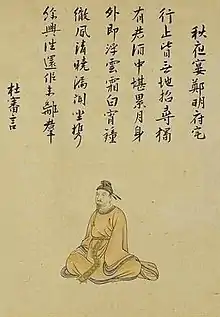 秋夜宴鄭明府宅
行止皆無地招尋獨
有君酒中堪累月身
外即浮雲霜白宵鐘
徹風清曉漏聞坐攜
餘興往還似未離羣
杜審言